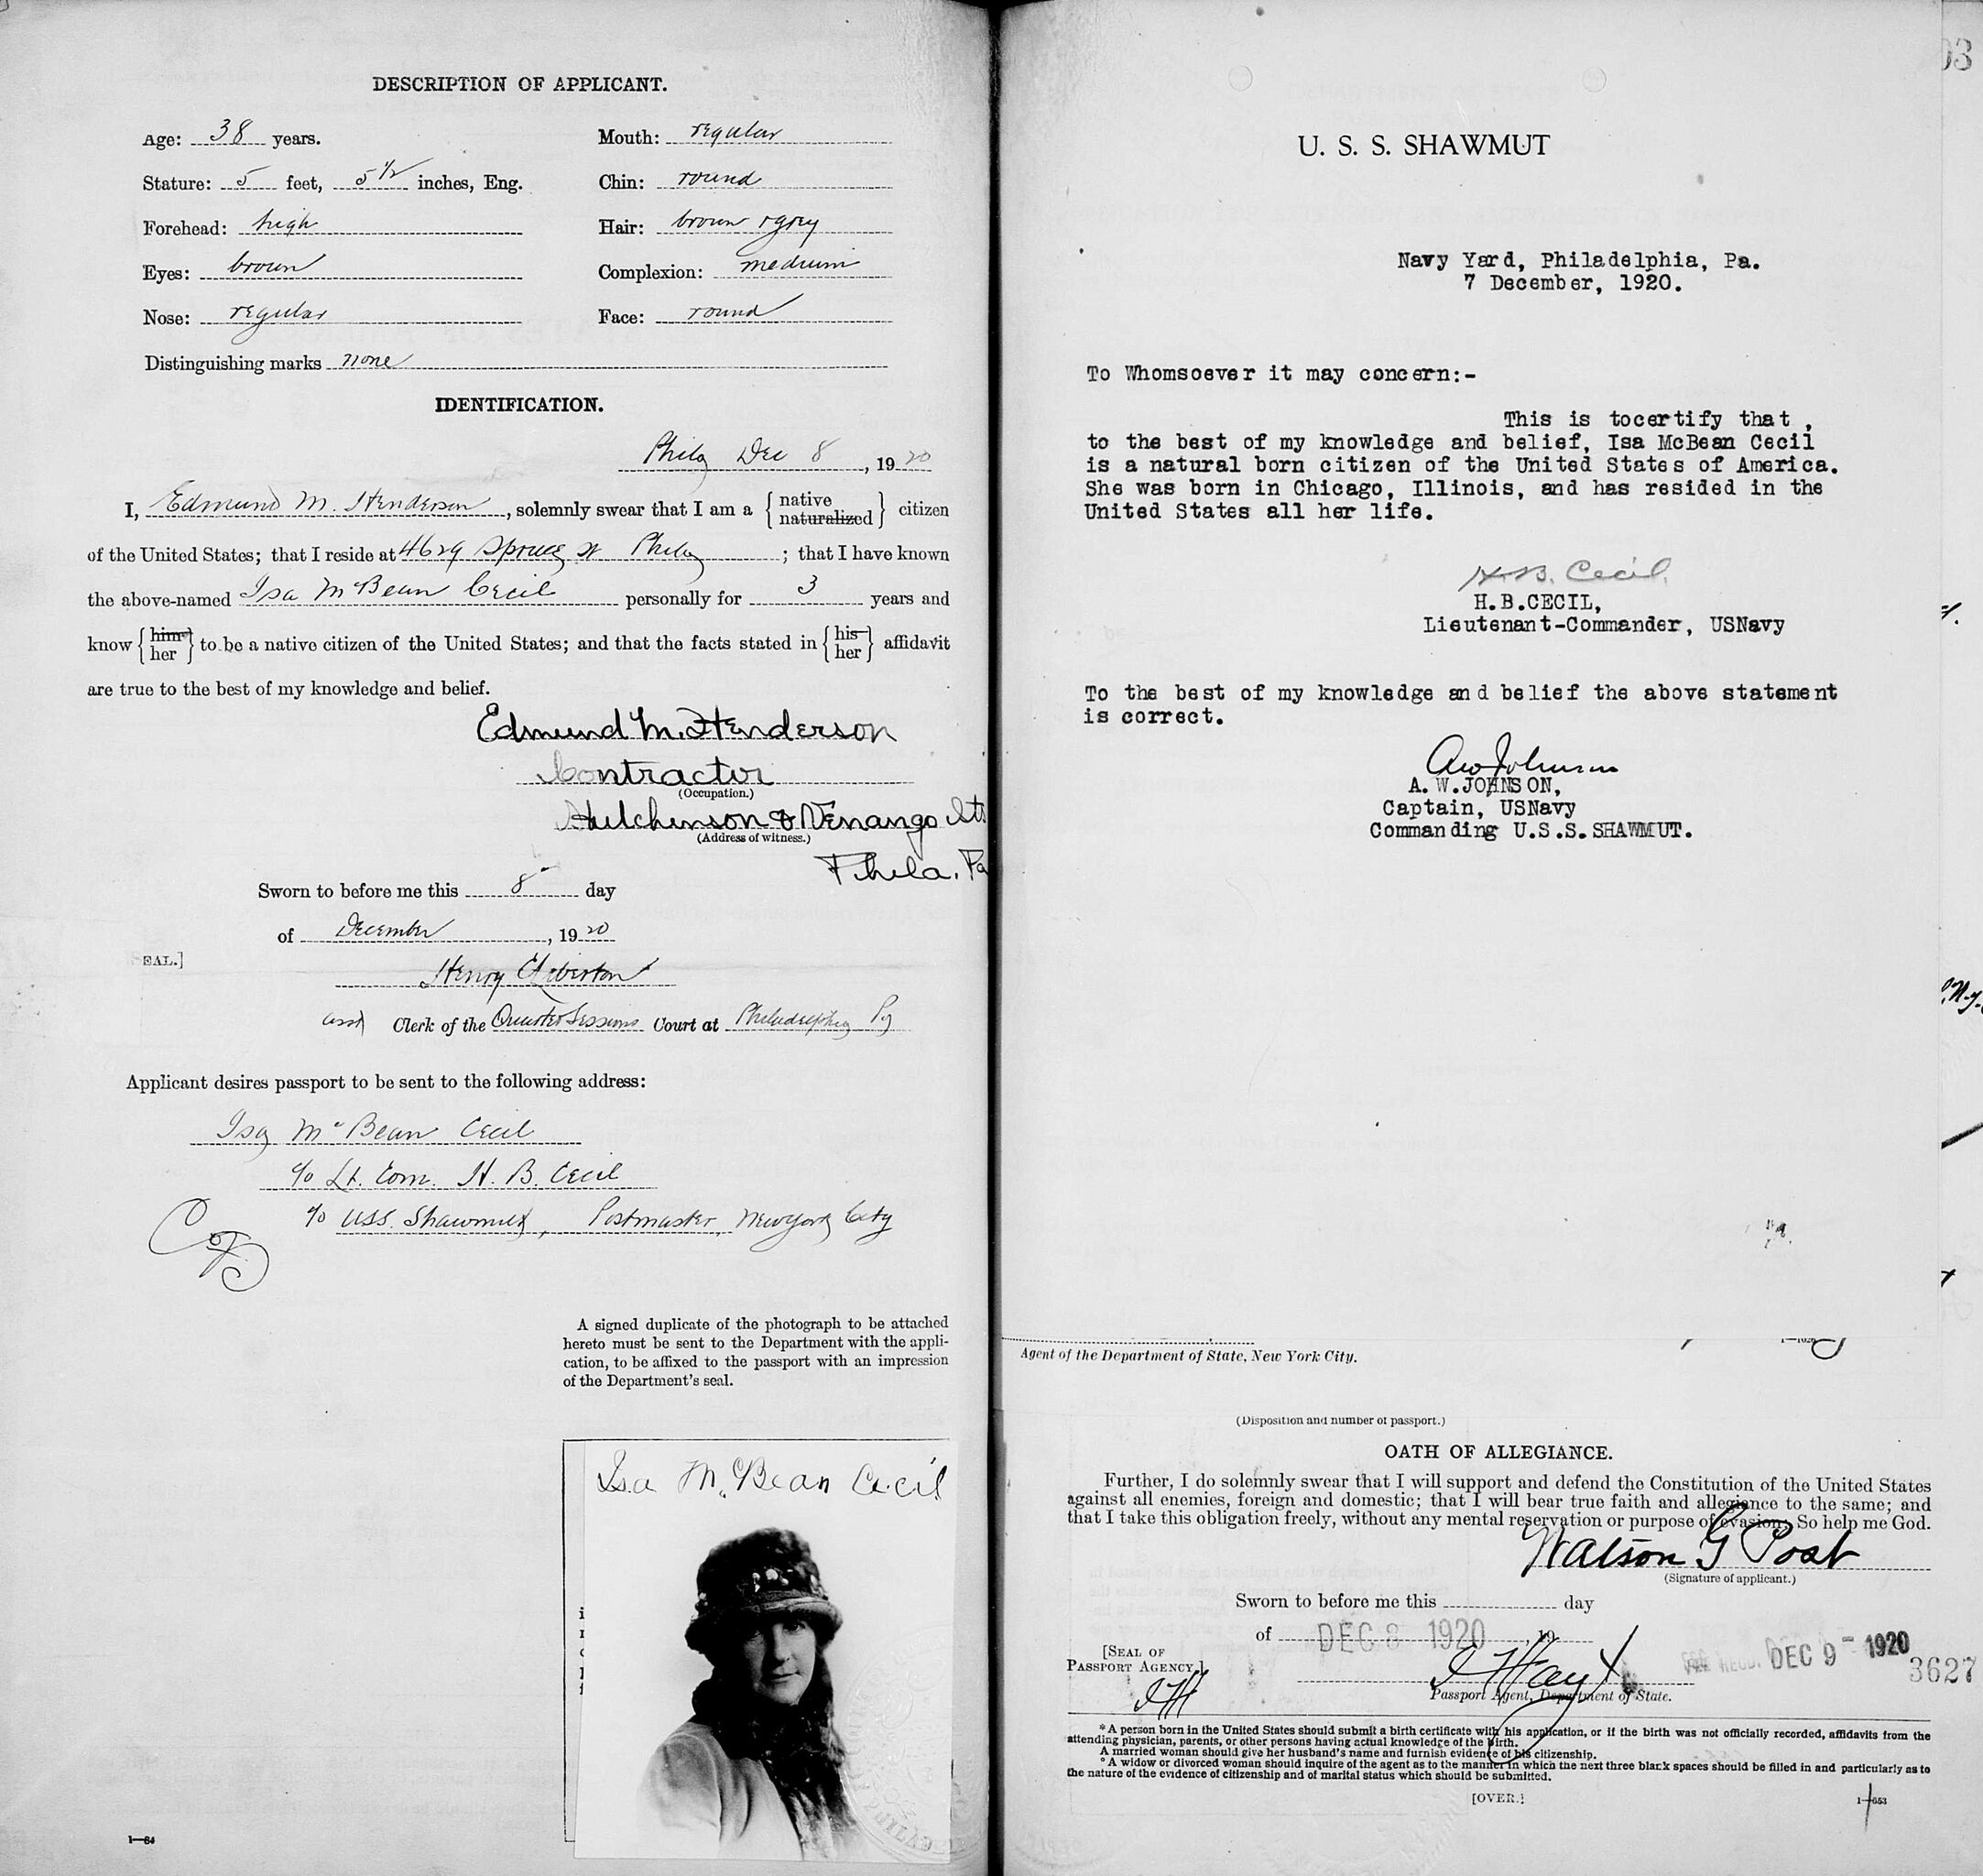 DESCRIPTION OF APPLICANT.
Age: 38 years.
Mouth: regular
Stature: 5 feet, 5 1/2 inches, Eng.
Chin: round
Forehead: high
Hair: brown & grey
Eyes: brown
Complexion: medium
Nose: regular
Face: round
Distinguishing marks none
IDENTIFICATION.
Phila Dec 8, 1920
I, Edmund M. Henderson, solemnly swear that I am a {native naturalized} citizen
of the United States; that I reside at 4629 Spruce st Phila; that I have known
the above-named Isa McBean Cecil personally for 3 years and
know {him her} to be a native citizen of the United States; and that the facts stated in {his her} affidavit
are true to the best of my knowledge and belief.
Edmund M. Henderson
Contractor
(Occupation.)
Hutchinson & Venango Sts
(Address of witness.)
Phila. Pa
Sworn to before me this 8 day
of December, 1920
EAL.]
Henry
asst Clerk of the Quarter Sessions Court at Philadelphia Pa
Applicant desires passport to be sent to the following address:
Isa McBean Cecil
c/o Lt. Com. H. B. Cecil
c/o USS. Shawmut, Postmaster, New York City
A signed duplicate of the photograph to be attached
hereto must be sent to the Department with the appli-
cation, to be affixed to the passport with an impression
of the Department's seal.
Isa McBean Cecil
1—64
U. S. S. SHAWMUT
Navy Yard, Philadelphia, Pa.
7 December, 1920.
To Whomsoever it may concern:-
This is tocertify that ,
to the best of my knowledge and belief, Isa McBean Cecil
is a natural born citizen of the United States of America.
She was born in Chicago, Illinois, and has resided in the
United States all her life.
H.B. Cecil
H.B.CECIL,
Lieutenant-Commander, USNavy
To the best of my knowledge and belief the above statement
is correct.
AW Johnson
A.W.JOHNSON,
Captain, USNavy
Commanding U.S.S.SHAWMUT.
Agent of the Department of State, New York City.
(Disposition and number of passport.)
OATH OF ALLEGIANCE.
Further, I do solemnly swear that I will support and defend the Constitution of the United States
against all enemies, foreign and domestic; that I will bear true faith and allegiance to the same; and
that I take this obligation freely, without any mental reservation or purpose of evasion: So help me God.
Watson G Post
(Signature of applicant.)
Sworn to before me this day
of DEC 8 1920, 19
[SEAL OF
PASSPORT AGENCY.]
DEC 9 - 1920
3627
Passport Agent, Department of State.
*A person born in the United States should submit a birth certificate with his application, or if the birth was not officially recorded, affidavits from the
attending physician, parents, or other persons having actual knowledge of the birth.
A married woman should give her husband's name and furnish evidence of his citizenship.
°A widow or divorced woman should inquire of the agent as to the manner in which the next three blank spaces should be filled in and particularly as to
the nature of the evidence of citizenship and of marital status which should be submitted.
[OVER.]